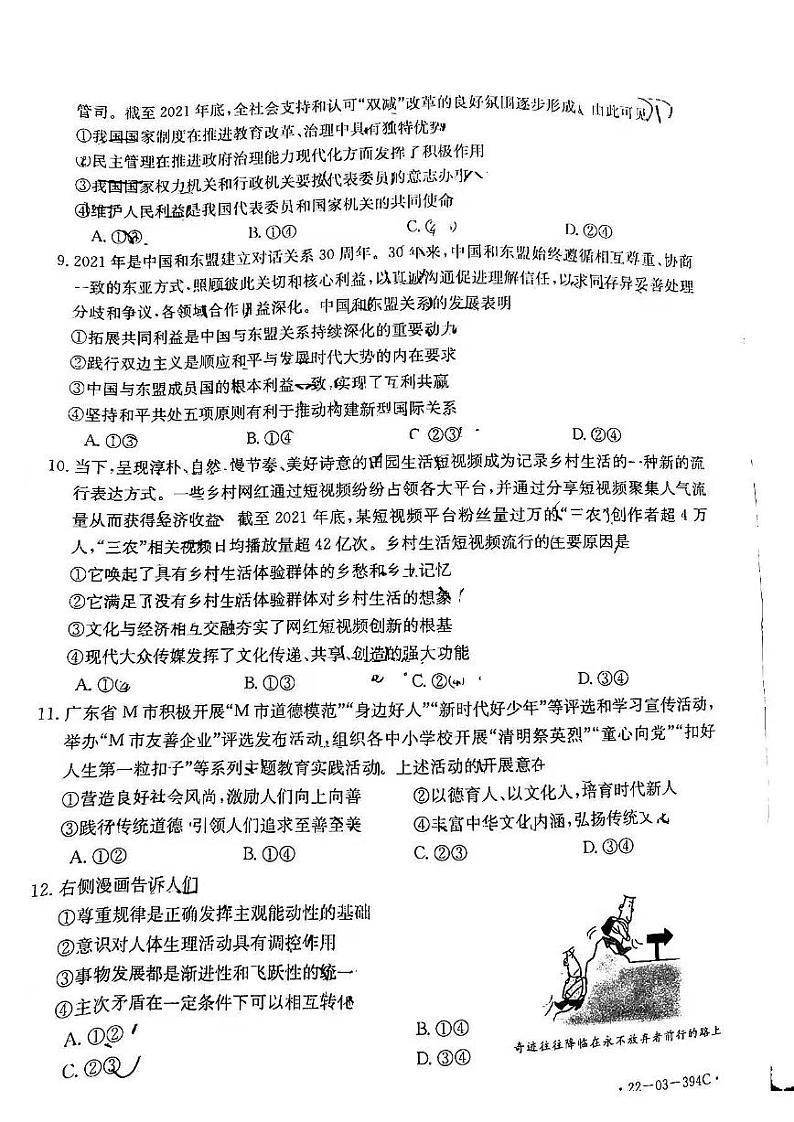 管司。截至2021年底,全社会支持和认可“双减”改革的良好氛围逐步形成。由此可见
①我国国家制度在推进教育改革、治理中具有独特优势
②民主管理在推进政府治理能力现代化方面发挥了积极作用
③我国国家权力机关和行政机关要按代表委员的意志办事
④维护人民利益是我国代表委员和国家机关的共同使命
A. ①③ B. ①④ C. D. ②④
9. 2021年是中国和东盟建立对话关系30周年。30年来,中国和东盟始终遵循相互尊重、协商
一致的东亚方式,照顾彼此关切和核心利益,以真诚沟通促进理解信任,以求同存异妥善处理
分歧和争议,各领域合作日益深化。中国和东盟关系的发展表明
①拓展共同利益是中国与东盟关系持续深化的重要动力
②践行双边主义是顺应和平与发展时代大势的内在要求
③中国与东盟成员国的根本利益一致,实现了互利共赢
④坚持和平共处五项原则有利于推动构建新型国际关系
A. ①③ B. ①④ C. ②③ D. ②④
10. 当下,呈现淳朴、自然、慢节奏、美好诗意的田园生活短视频成为记录乡村生活的一种新的流
行表达方式。一些乡村网红通过短视频纷纷占领各大平台,并通过分享短视频聚集人气流
量从而获得经济收益。截至2021年底,某短视频平台粉丝量过万的“三农”创作者超4万
人,“三农”相关视频日均播放量超42亿次。乡村生活短视频流行的主要原因是
①它唤起了具有乡村生活体验群体的乡愁和乡土记忆
②它满足了没有乡村生活体验群体对乡村生活的想象
③文化与经济相互交融夯实了网红短视频创新的根基
④现代大众传媒发挥了文化传递、共享、创造的强大功能
A. ①② B. ①③ C. ②④ D. ③④
11. 广东省M市积极开展“M市道德模范”“身边好人”“新时代好少年”等评选和学习宣传活动,
举办“M市友善企业”评选发布活动,组织各中小学校开展“清明祭英烈”“童心向党”“扣好
人生第一粒扣子”等系列主题教育实践活动。上述活动的开展意在
①营造良好社会风尚,激励人们向上向善 ②以德育人、以文化人,培育时代新人
③践行传统道德,引领人们追求至善至美 ④丰富中华文化内涵,弘扬传统文化
A. ①② B. ①④ C. ②③ D. ③④
12. 右侧漫画告诉人们
①尊重规律是正确发挥主观能动性的基础
②意识对人体生理活动具有调控作用
③事物发展都是渐进性和飞跃性的统一
④主次矛盾在一定条件下可以相互转化
A. ①② B. ①④
C. ②③ D. ③④
奇迹往往降临在永不放弃者前行的路上
·22—03—394C·